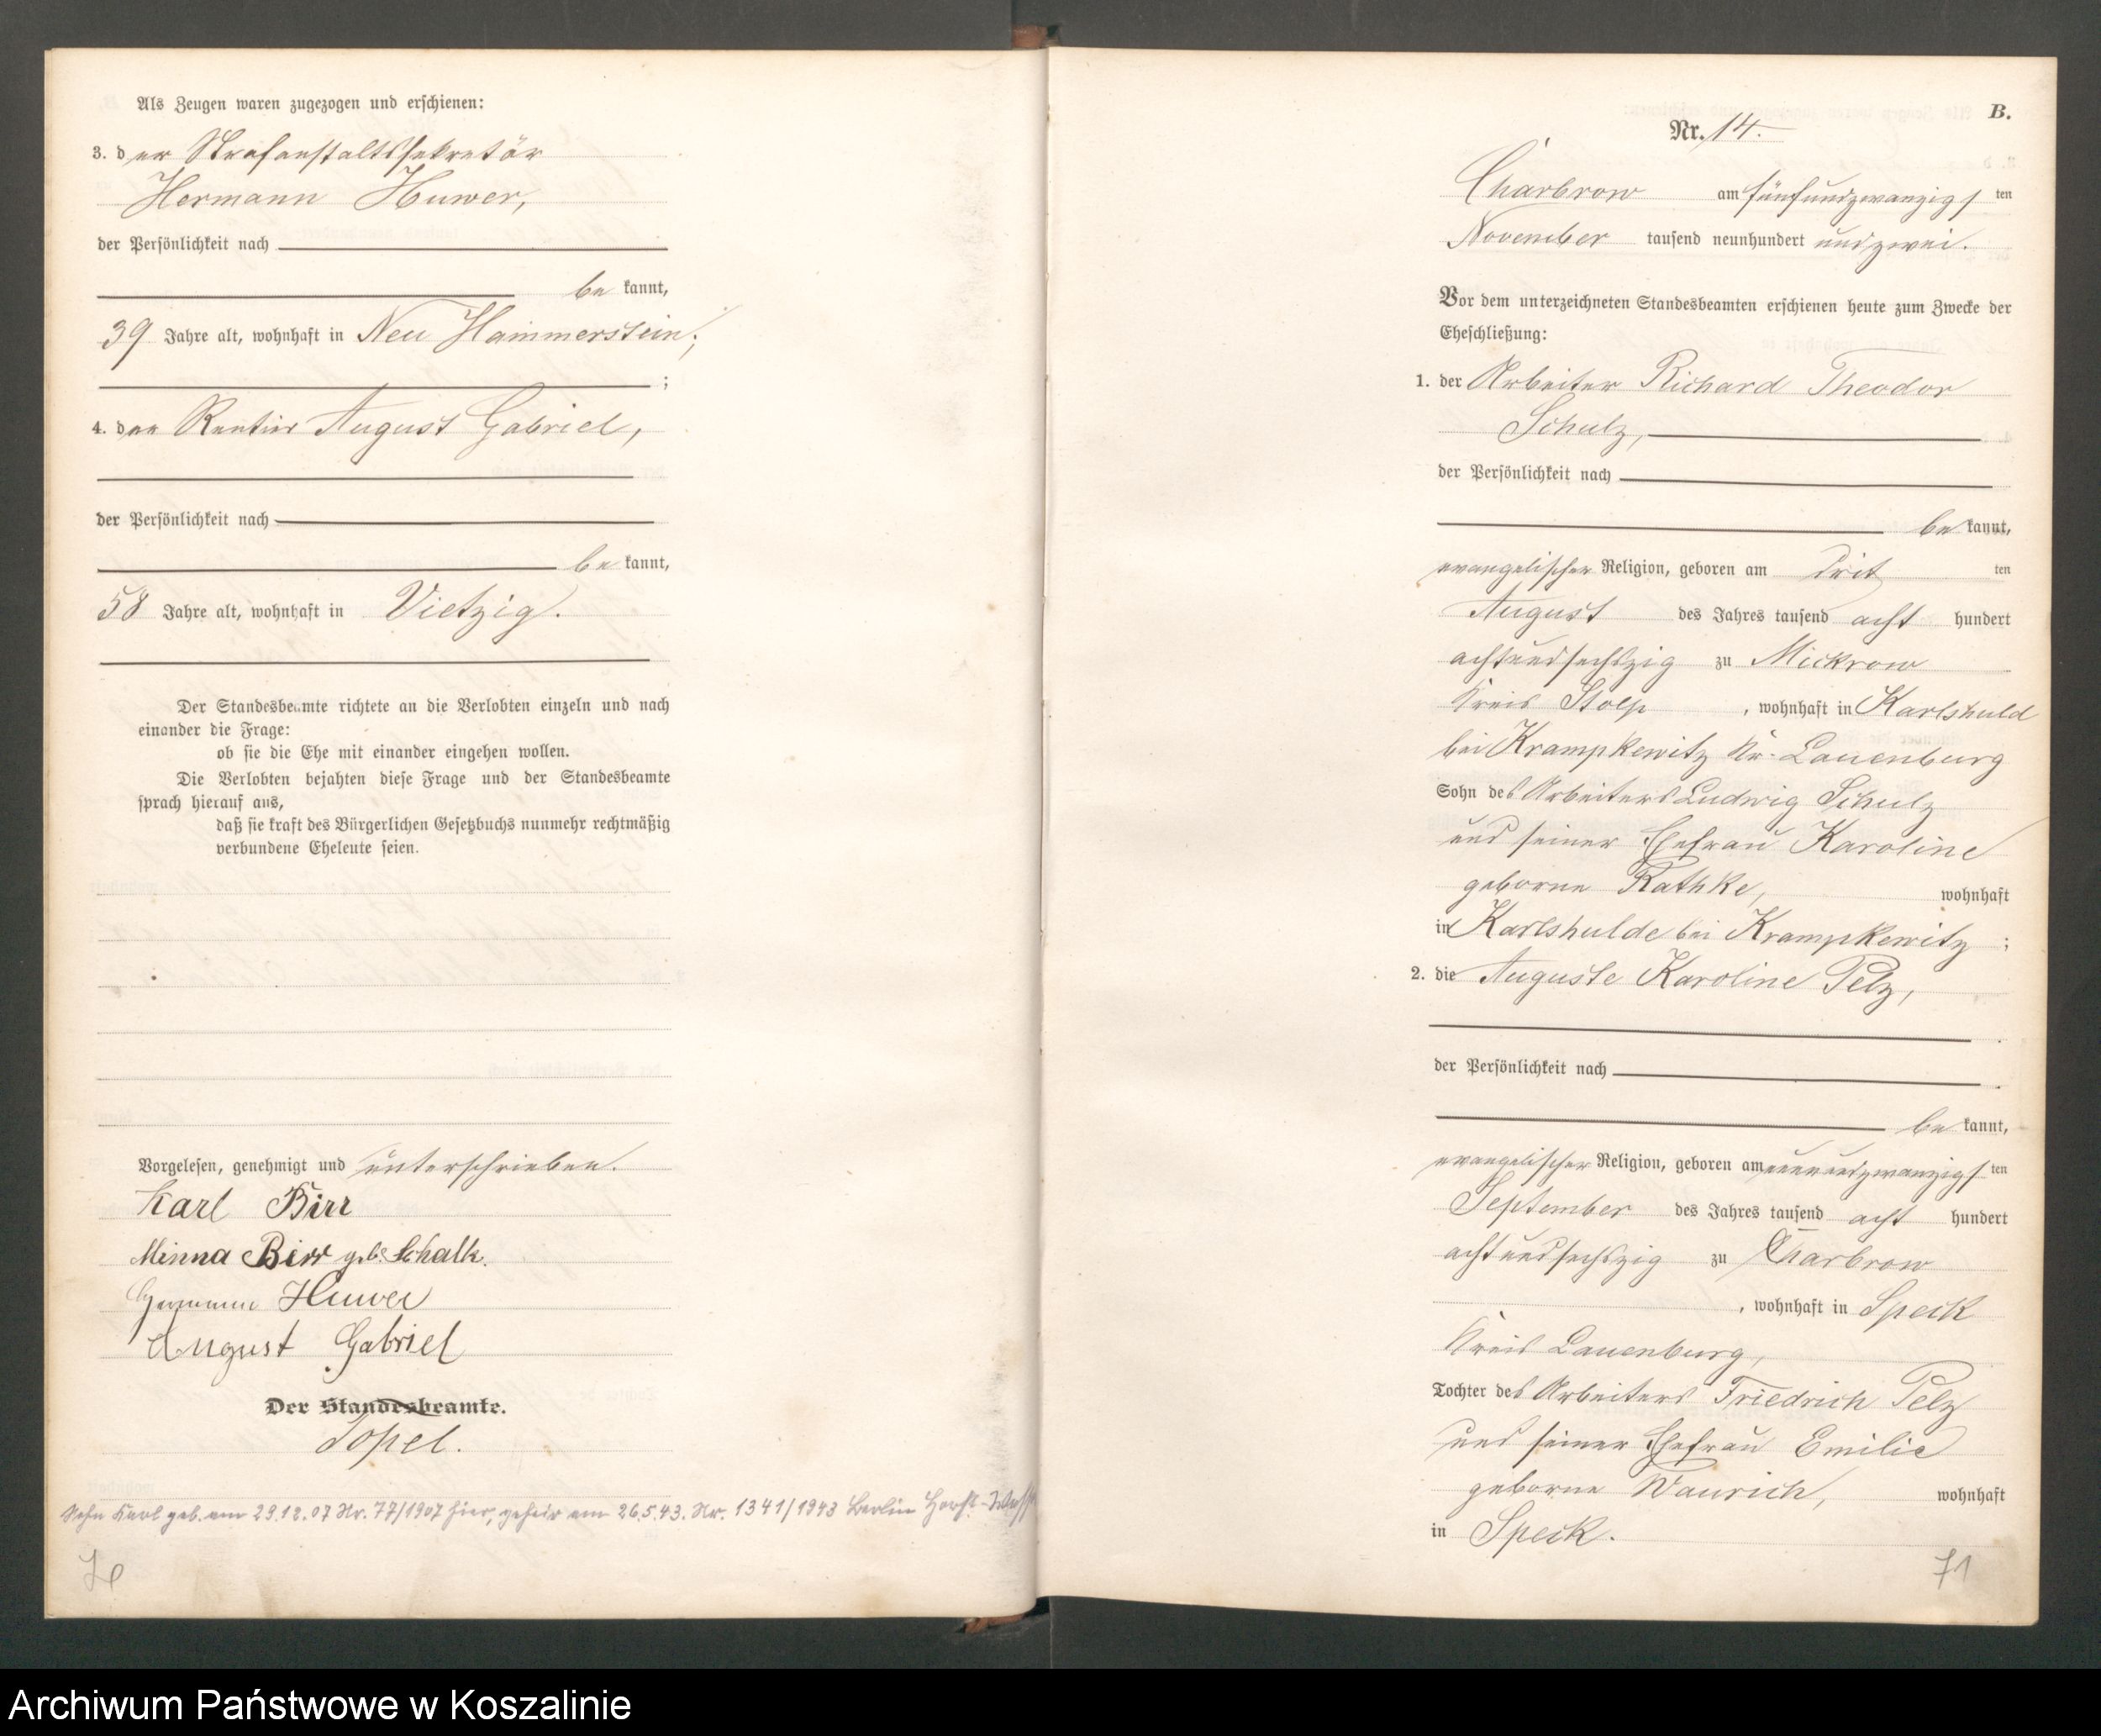 Als Zeugen waren zugezogen und erschienen:
3. der Strafanstaltssekretär
Hermann Huwer,
der Persönlichkeit nach
be kannt,
39 Jahre alt, wohnhaft in Neu Hammerstein;
;
4. der Rentier August Gabriel,
der Persönlichkeit nach
be kannt,
58 Jahre alt, wohnhaft in Vietzig.
Der Standesbeamte richtete an die Verlobten einzeln und nach
einander die Frage:
ob sie die Ehe mit einander eingehen wollen.
Die Verlobten bejahten diese Frage und der Standesbeamte
sprach hierauf aus,
daß sie kraft des Bürgerlichen Gesetzbuchs nunmehr rechtmäßig
verbundene Eheleute seien.
Vorgelesen, genehmigt und unterschrieben.
Karl Birr
Minna Birr geb. Schalk.
Hermann Huwer
August Gabriel
Der Standesbeamte.
Topel.
Sohn Karl geb. am 29.12.07 Nr. 77/1907 hier, geheir am 26.5.43. Nr. 1341/1943 Berlin Horst-
B.
Nr. 14.
Charbrow am fünfundzwanzigsten
November tausend neunhundert und zwei.
Vor dem unterzeichneten Standesbeamten erschienen heute zum Zwecke der
Eheschließung:
1. der Arbeiter Richard Theodor
Schulz,
der Persönlichkeit nach
be kannt,
evangelischer Religion, geboren am drit ten
August des Jahres tausend acht hundert
achtundsechszig zu Mickrow
Kreis Stolp, wohnhaft in Karlshuld
bei Krampkewitz Kr. Lauenburg
Sohn des Arbeiters Ludwig Schulz
und seiner Ehefrau Karoline
geborne Rathke, wohnhaft
in Karlshulde bei Krampkewitz ;
2. die Auguste Karoline Pelz,
der Persönlichkeit nach
be kannt,
evangelischer Religion, geboren am neunundzwanzigsten
September des Jahres tausend acht hundert
achtundsechszig zu Charbrow
, wohnhaft in Speck
Kreis Lauenburg,
Tochter des Arbeiters Friedrich Pelz
und seiner Ehefrau Emilie
geborne Waurich, wohnhaft
in Speck.
71
Archiwum Państwowe w Koszalinie